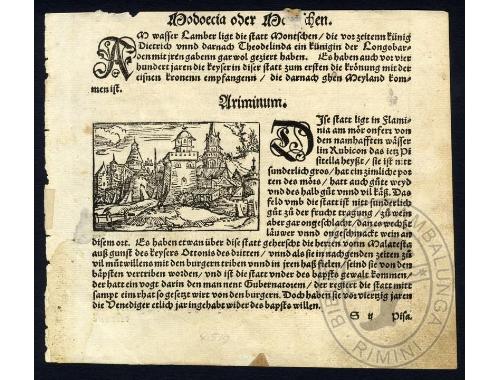 Modoecia oder Montschen.
AM wasser Lamber ligt die statt Montschen / die vor zeitenn künig
Dietrich vnnd darnach Theodelinda ein künigin der Longobar-
den mit jren gabenn gar wol geziert haben. Es haben auch vor vier
hundert jaren die keyser in diser statt zum ersten die krönung mit der
eisnen kronenn empfangenn / die darnach ghen Meyland kom-
men ist.
Ariminum.
DIse statt ligt in Flami-
nia am mör onferr von
den namhafften wässer
lin Rubicon das ietz Pi
sitella heyßt / sie ist nitt
sunderlich gros / hat ein zimlich por
ten des mörs / hatt auch güte weyd
vnd des halb güt vnnd vil käß. Das
feld vmb die statt ist nitt sunderlich
güt zü der frucht tragung / zü wein
aber gar ongeschlacht / dan es wechßt
lauwer vnnd ongeschmackt wein an
disem ort. Es haben etwan über dise statt geherscht die herren vonn Malatesta
auß gunst des keysers Ottonis des dritten / vnnd als sie in nachgenden zeiten zü
vil mütwillens mit den burgern triben vnnd in jren haß fielen / seind sie von den
bäpsten vertriben worden / vnd ist die statt vnder des bapsts gewalt kommen /
der hatt ein vogt darin den man nent Gubernatorem / der regiert die statt mitt
sampt eim rhat so gesetzt wirt von den burgern. Doch haben sie vor viertzig jaren
die Venediger etlich jar ingehabt wider des bapsts willen.
S ij Pisa.
RIMINI